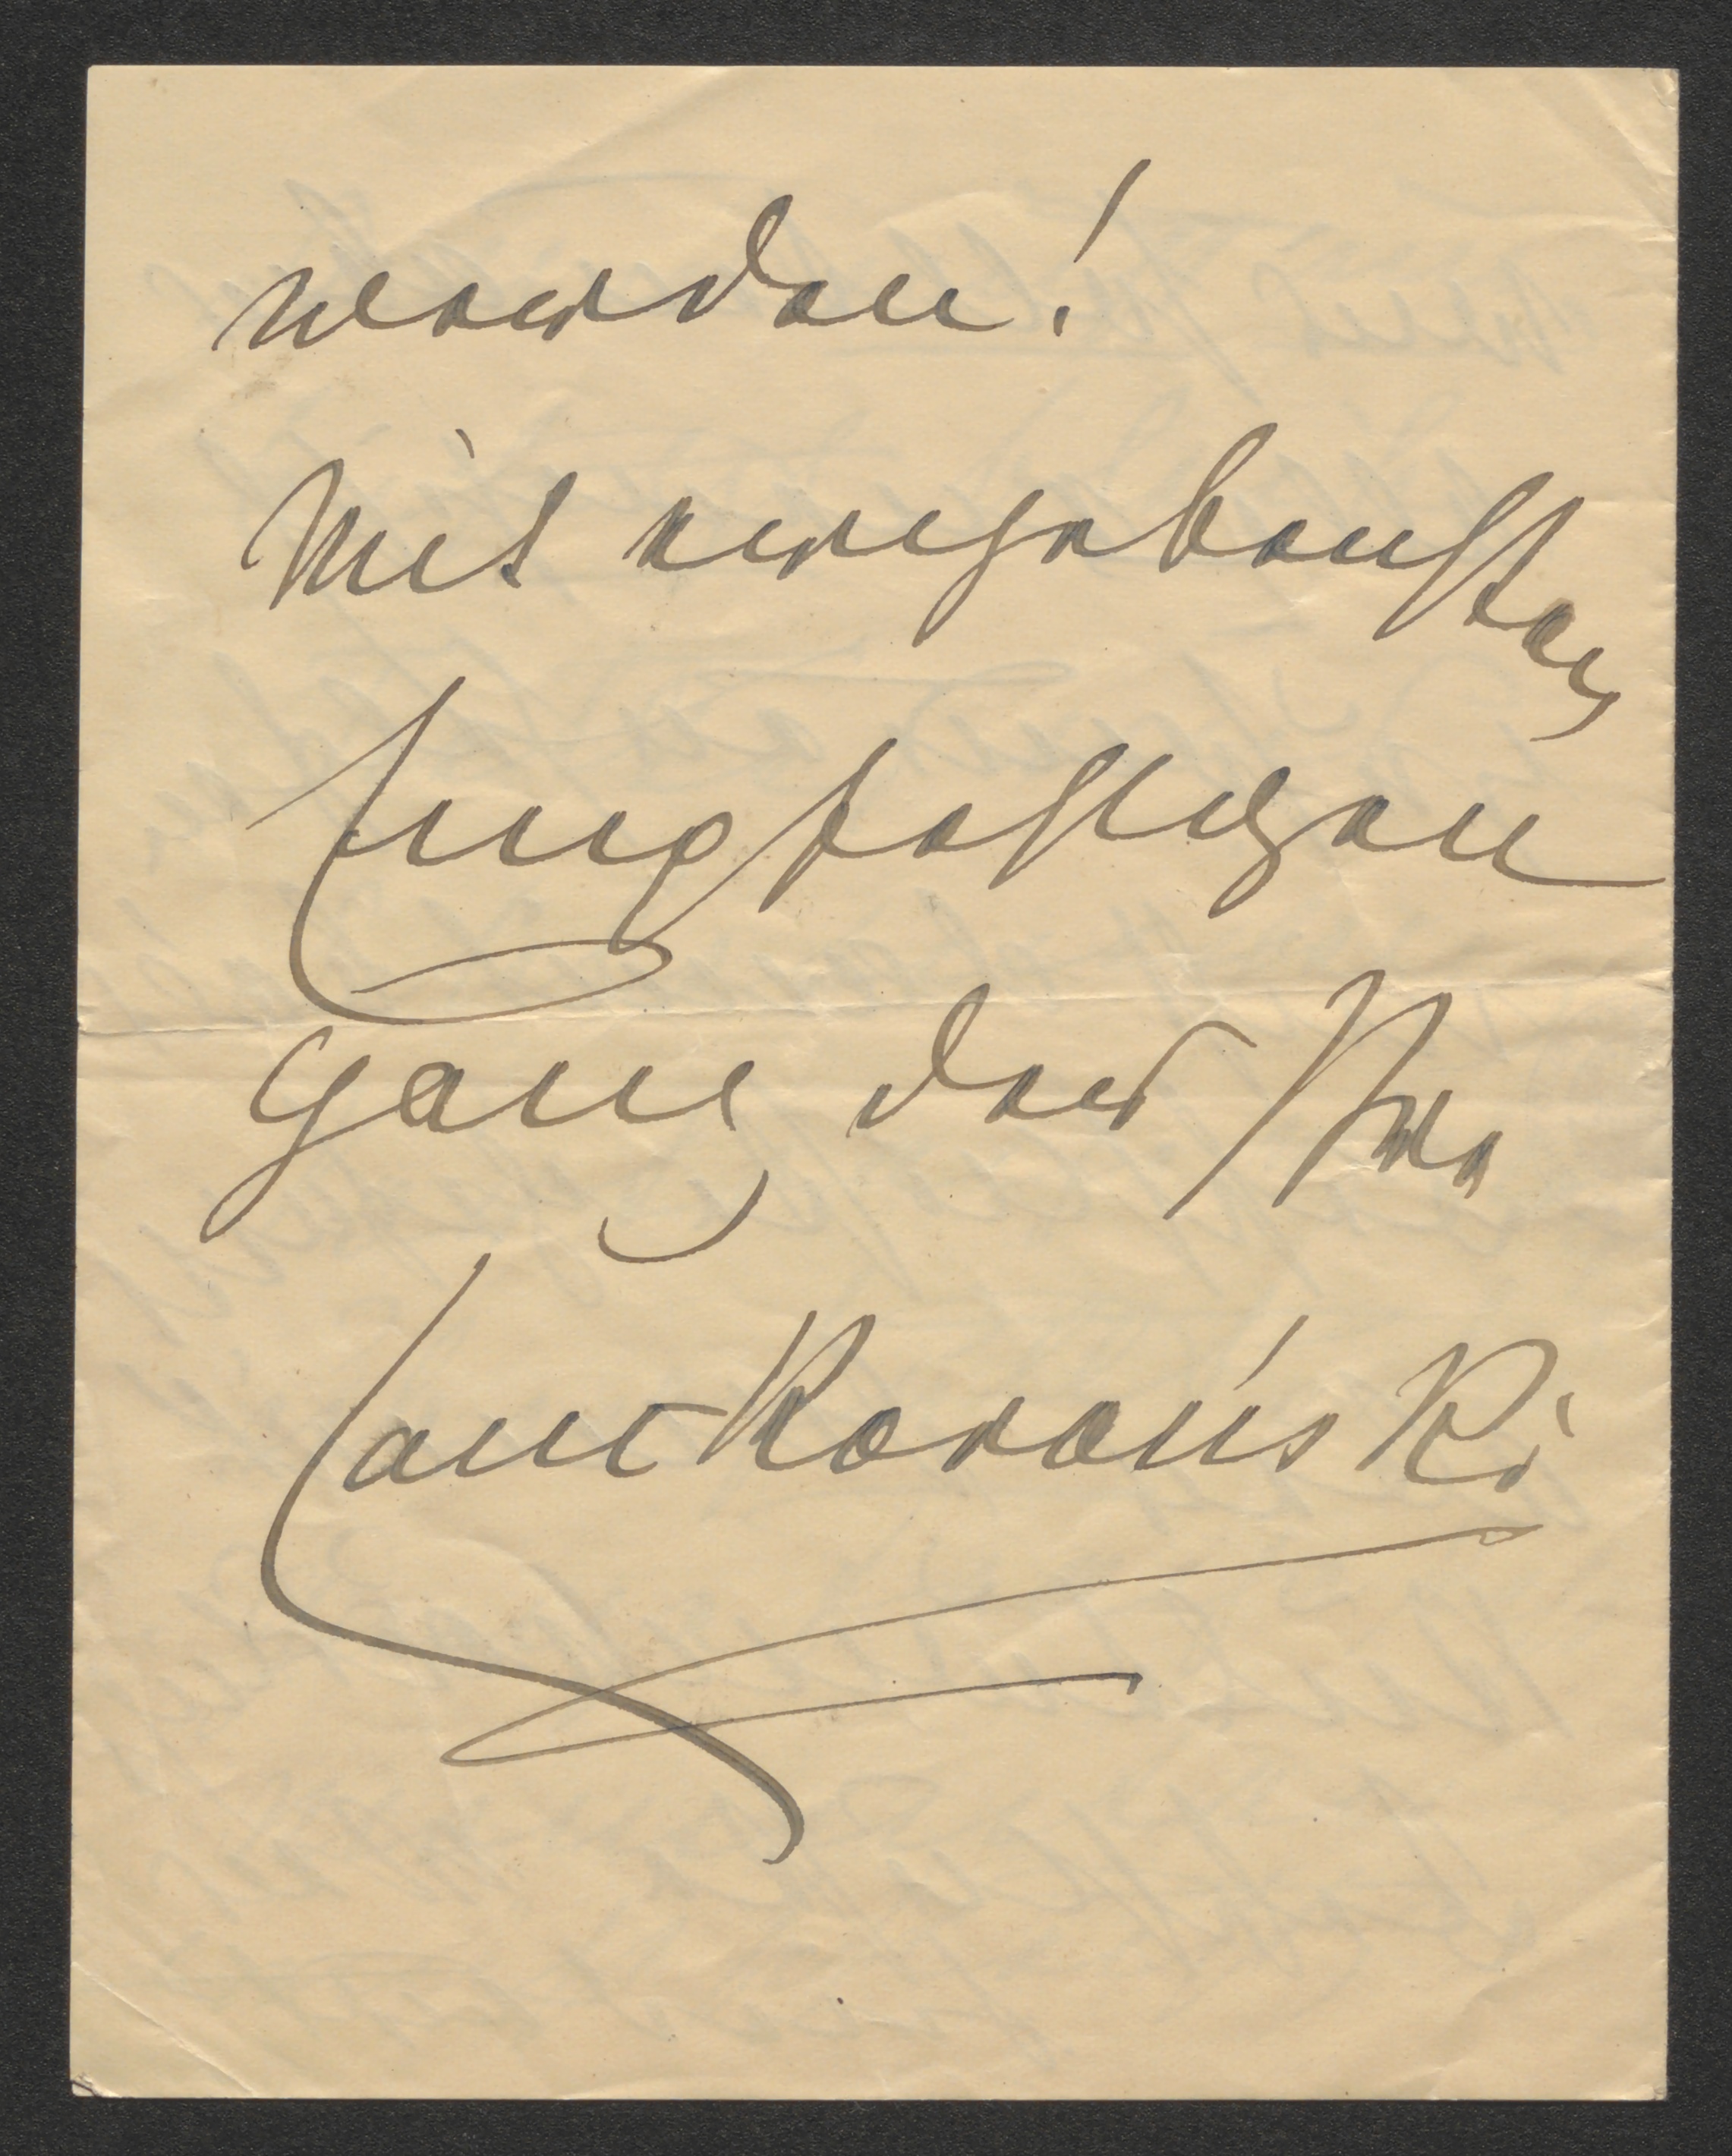 werden!
Mit ergebensten
Empfehlungen
ganz der Ihre
Lanckoroński